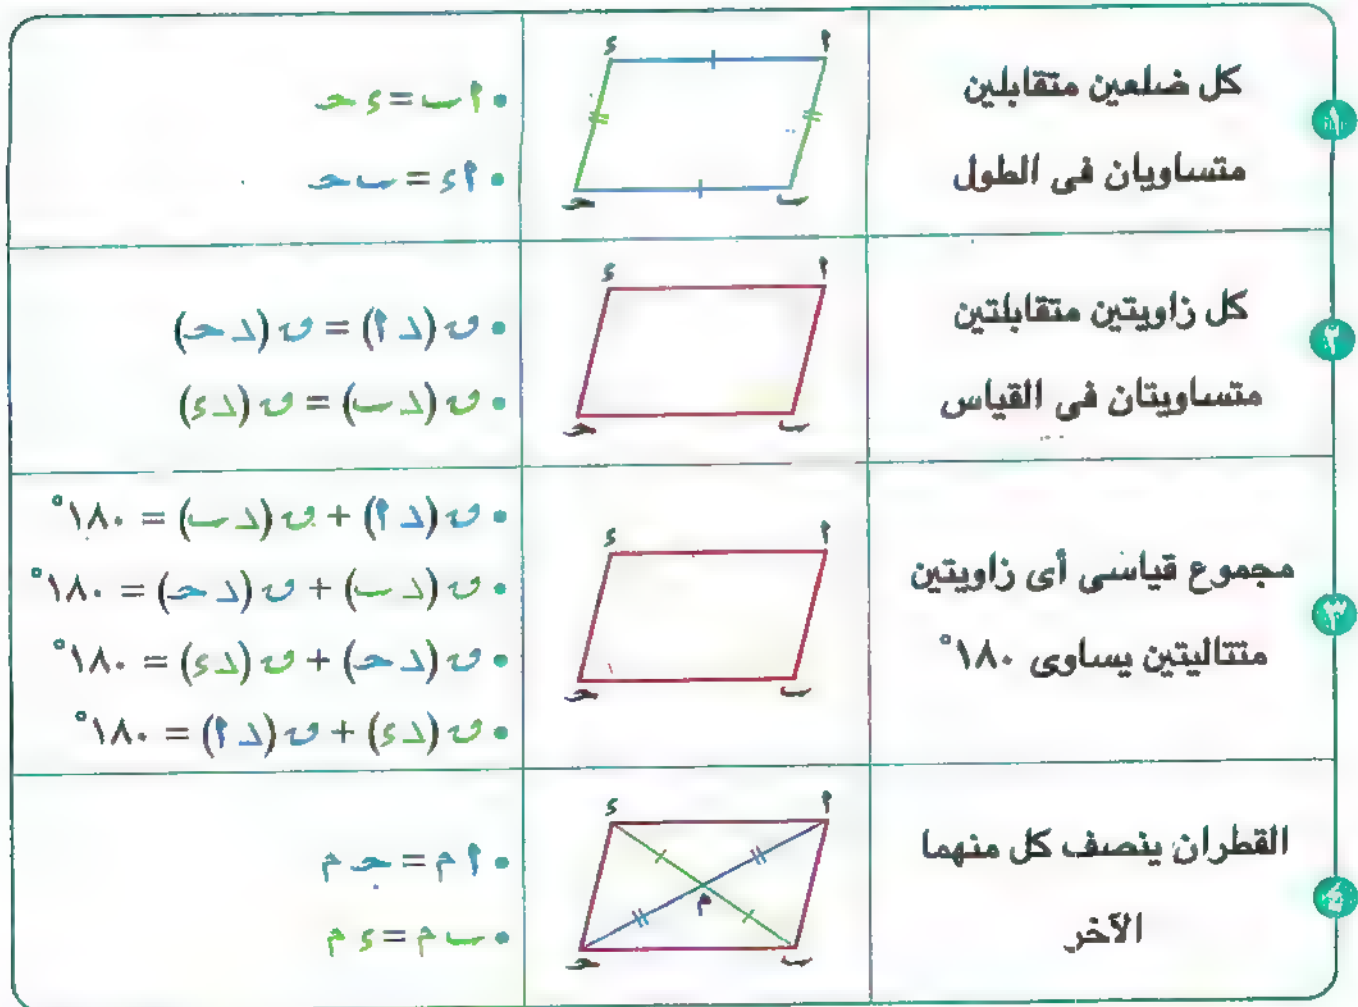 ١
كل ضلعين متقابلين
متساويان فى الطول
ء ا
حـ ب
• ا ب = ء حـ
• ا ء = ب حـ
٢
كل زاويتين متقابلتين
متساويتان فى القياس
ء ا
حـ ب
• ق (د ا) = ق (د حـ)
• ق (د ب) = ق (د ء)
٣
مجموع قياسى أى زاويتين
متتاليتين يساوى ١٨٠°
ء ا
حـ ب
• ق (د ا) + ق (د ب) = ١٨٠°
• ق (د ب) + ق (د حـ) = ١٨٠°
• ق (د حـ) + ق (د ء) = ١٨٠°
• ق (د ء) + ق (د ا) = ١٨٠°
٤
القطران ينصف كل منهما
الآخر
ء ا
م
حـ ب
• ا م = جـ م
• ب م = ء م